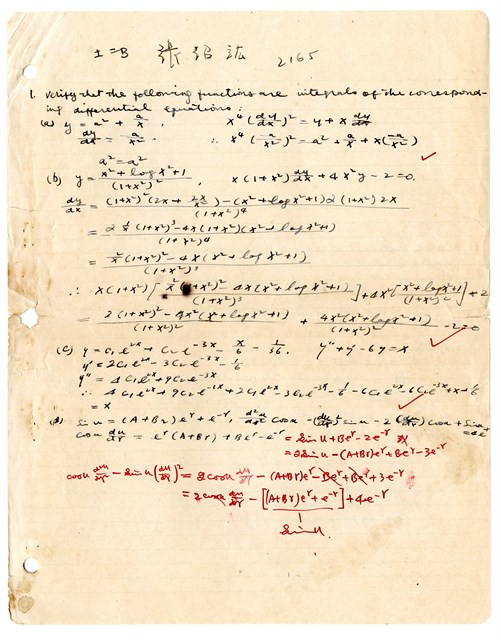 土=B 張紹法 2165
1. Verify that the following functions are integrals of the correspond-
ing differential equations:
(a) y = a² + a/x , x⁴ (dy/dx)² = y + x dy/dx
dy/dx = -a/x² ∴ x⁴ (-a/x²)² = a² + a/x + x(-a/x²)
a² = a²
(b) y = (x² + log x² + 1)/(1+x²)² , x(1+x²) dy/dx + 4x²y - 2 = 0.
dy/dx = ((1+x²)²(2x + 2x/x²) - (x² + log x² + 1) 2(1+x²) 2x)/(1+x²)⁴
= (2 1/x (1+x²)³ - 4x(1+x²)(x² + log x² + 1))/(1+x²)⁴
= (2/x (1+x²)² - 4x(x² + log x² + 1))/(1+x²)³
∴ x(1+x²) [(2/x (1+x²)² - 4x(x² + log x² + 1))/(1+x²)³] + 4x² [(x² + log x² + 1)/(1+x²)²] + 2
= (2(1+x²)² - 4x²(x² + log x² + 1))/(1+x²)² + 4x²(x² + log x² + 1)/(1+x²)² - 2 = 0
(c) y = c₁e²ˣ + c₂e⁻³ˣ - x/6 - 1/36. y'' + y' - 6y = x
y' = 2c₁e²ˣ - 3c₂e⁻³ˣ - 1/6
y'' = 4c₁e²ˣ + 9c₂e⁻³ˣ
∴ 4c₁e²ˣ + 9c₂e⁻³ˣ + 2c₁e²ˣ - 3c₂e⁻³ˣ - 1/6 - 6c₁e²ˣ - 6c₂e⁻³ˣ + x + 1/6
= x
(d) sin u = (A+Br)eʳ + e⁻ʳ, d²u/dr² cos u - (du/dr)² sin u - 2(du/dr) cos u + sin u = 4e⁻ʳ
cos u du/dr = eʳ(A+Br) + Beʳ - e⁻ʳ = sin u + Beʳ - 2e⁻ʳ
= 2 sin u - (A+Br)eʳ + Beʳ - 3e⁻ʳ
cos u d²u/dr² - sin u (du/dr)² = 2 cos u du/dr - (A+Br)eʳ - Beʳ + Beʳ + 3e⁻ʳ
= 2 cos u du/dr - [(A+Br)eʳ + e⁻ʳ] + 4e⁻ʳ
sin u.